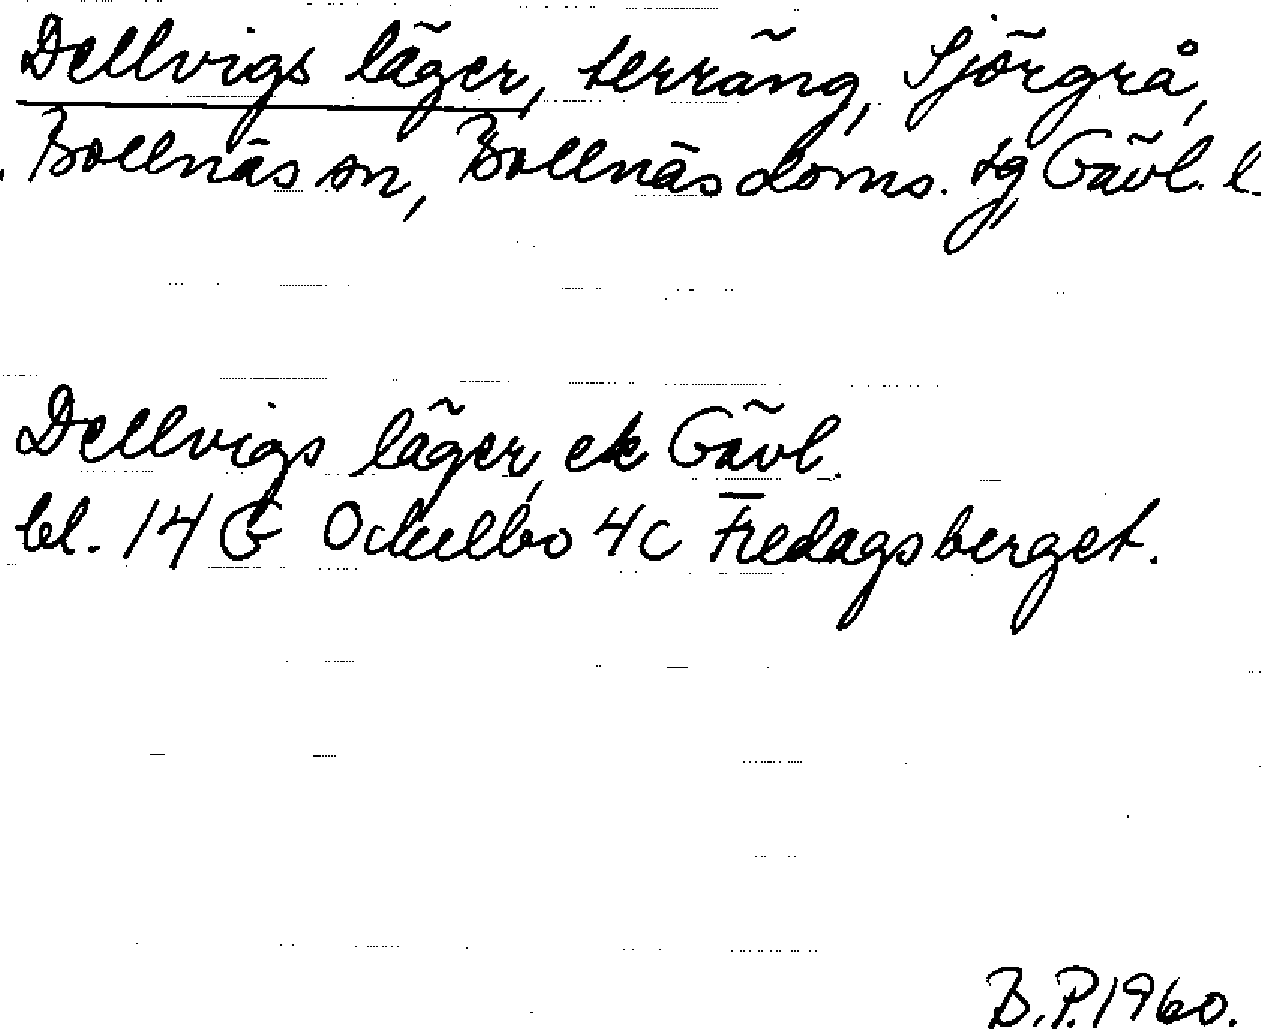 Dellvigs läger, terräng, Sjörgrå,
Bollnäs sn, Bollnäs doms. tg, Gävl. l.
Dellvigs läger, ek Gävl.
bl. 14 G Ockelbo 4c Fredagsberget.
B.P. 1960.